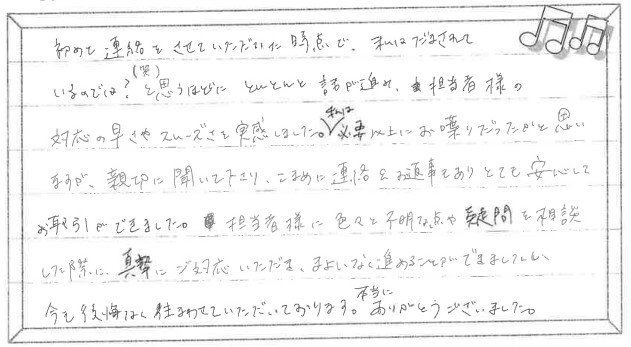 初めて連絡をさせていただいた時点で、私はだまされて
いるのでは?(笑)と思うほどに とんとんと話が進み、担当者様の
対応の早さやスムーズさを実感しました。私は必要以上にお喋りだったかと思い
ますが、親切に聞いて下り、こまめに連絡&お返事もありとても安心して
お取引ができました。担当者様に色々と不明な点や疑問を相談
した際に、真摯にご対応いただき、まよいなく進めることができましたし、
今も後悔なく住まわせていただいております。本当にありがとうございました。